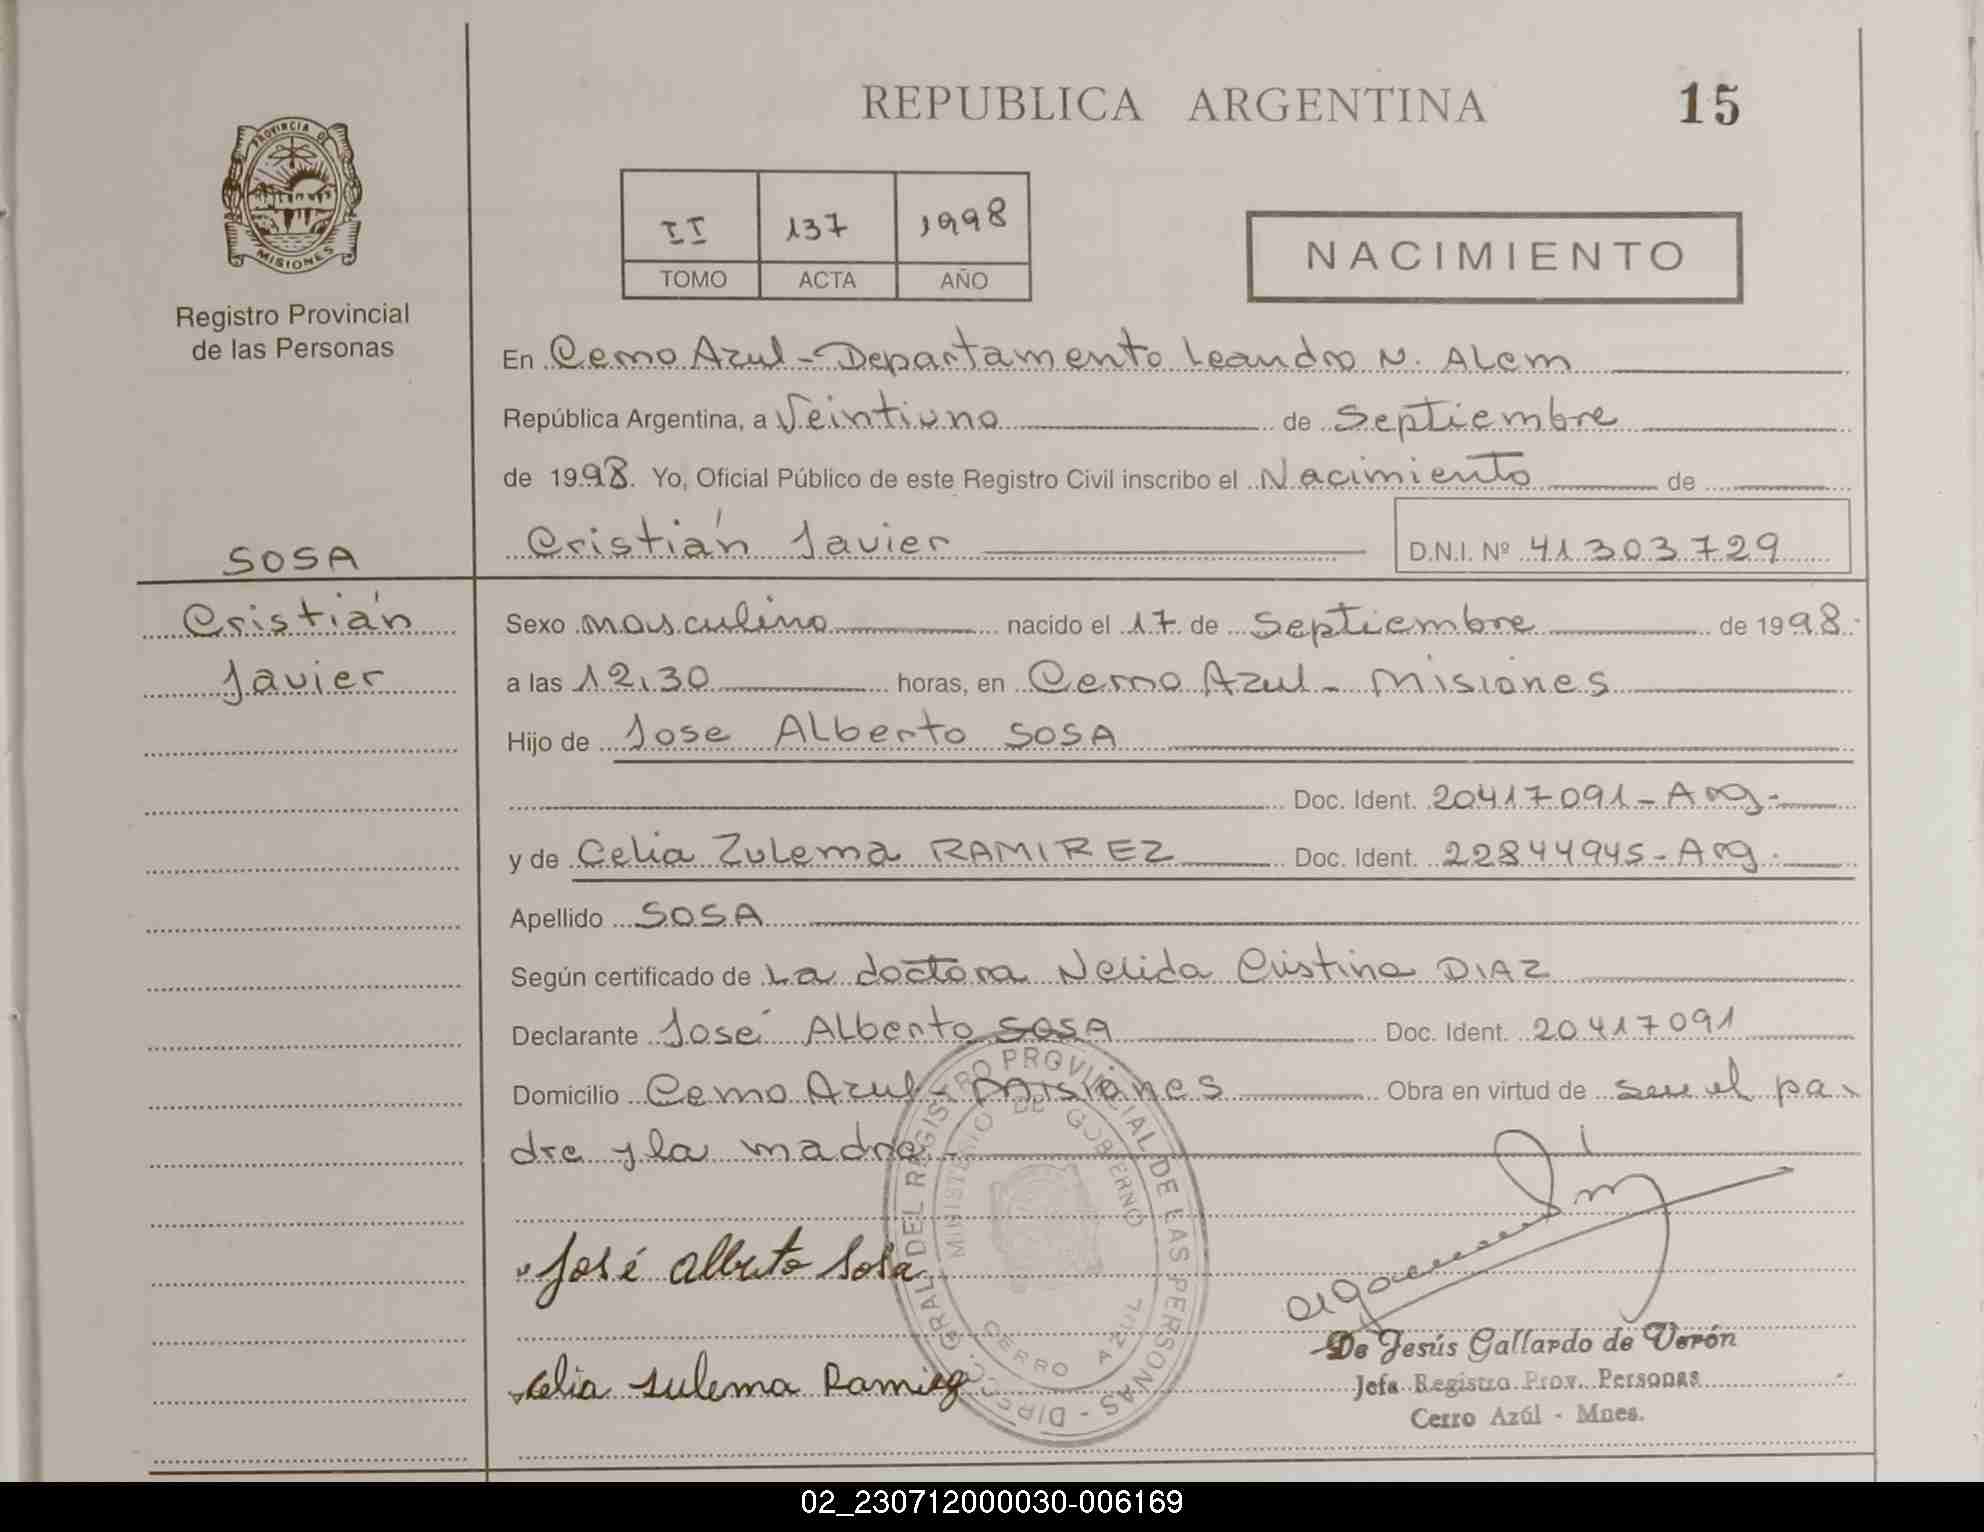 REPUBLICA ARGENTINA
15
PROVINCIA DE
MISIONES
Registro Provincial
de las Personas
II 137 1998
TOMO ACTA AÑO
NACIMIENTO
En Cerro Azul - Departamento Leandro N. ALem
República Argentina, a Veintiuno de Septiembre
de 1998. Yo, Oficial Público de este Registro Civil inscribo el Nacimiento de
Cristián Javier D.N.I. Nº 41303729
SOSA
Cristián
Javier
Sexo masculino nacido el 17 de Septiembre de 1998.
a las 12,30 horas, en Cerro Azul - Misiones
Hijo de Jose ALberto SOSA
Doc. Ident. 20417091 - Arg.
y de Celia ZuLema RAMIREZ Doc. Ident. 22844945 - Arg.
Apellido SOSA
Según certificado de La doctora Nelida Cristina DIAZ
Declarante José ALberto SOSA Doc. Ident. 20417091
Domicilio Cerro Azul - Misiones Obra en virtud de ser el pa-
dre y la madre.-
José Alberto Sosa
Celia Sulema Ramirez
DIRECC. GRAL DEL REGISTRO PROVINCIAL DE LAS PERSONAS -
MINISTERIO DE GOBIERNO
CERRO AZUL
De Jesús Gallardo de Verón
Jefa Registro Prov. Personas
Cerro Azúl - Mnes.
02_230712000030-006169